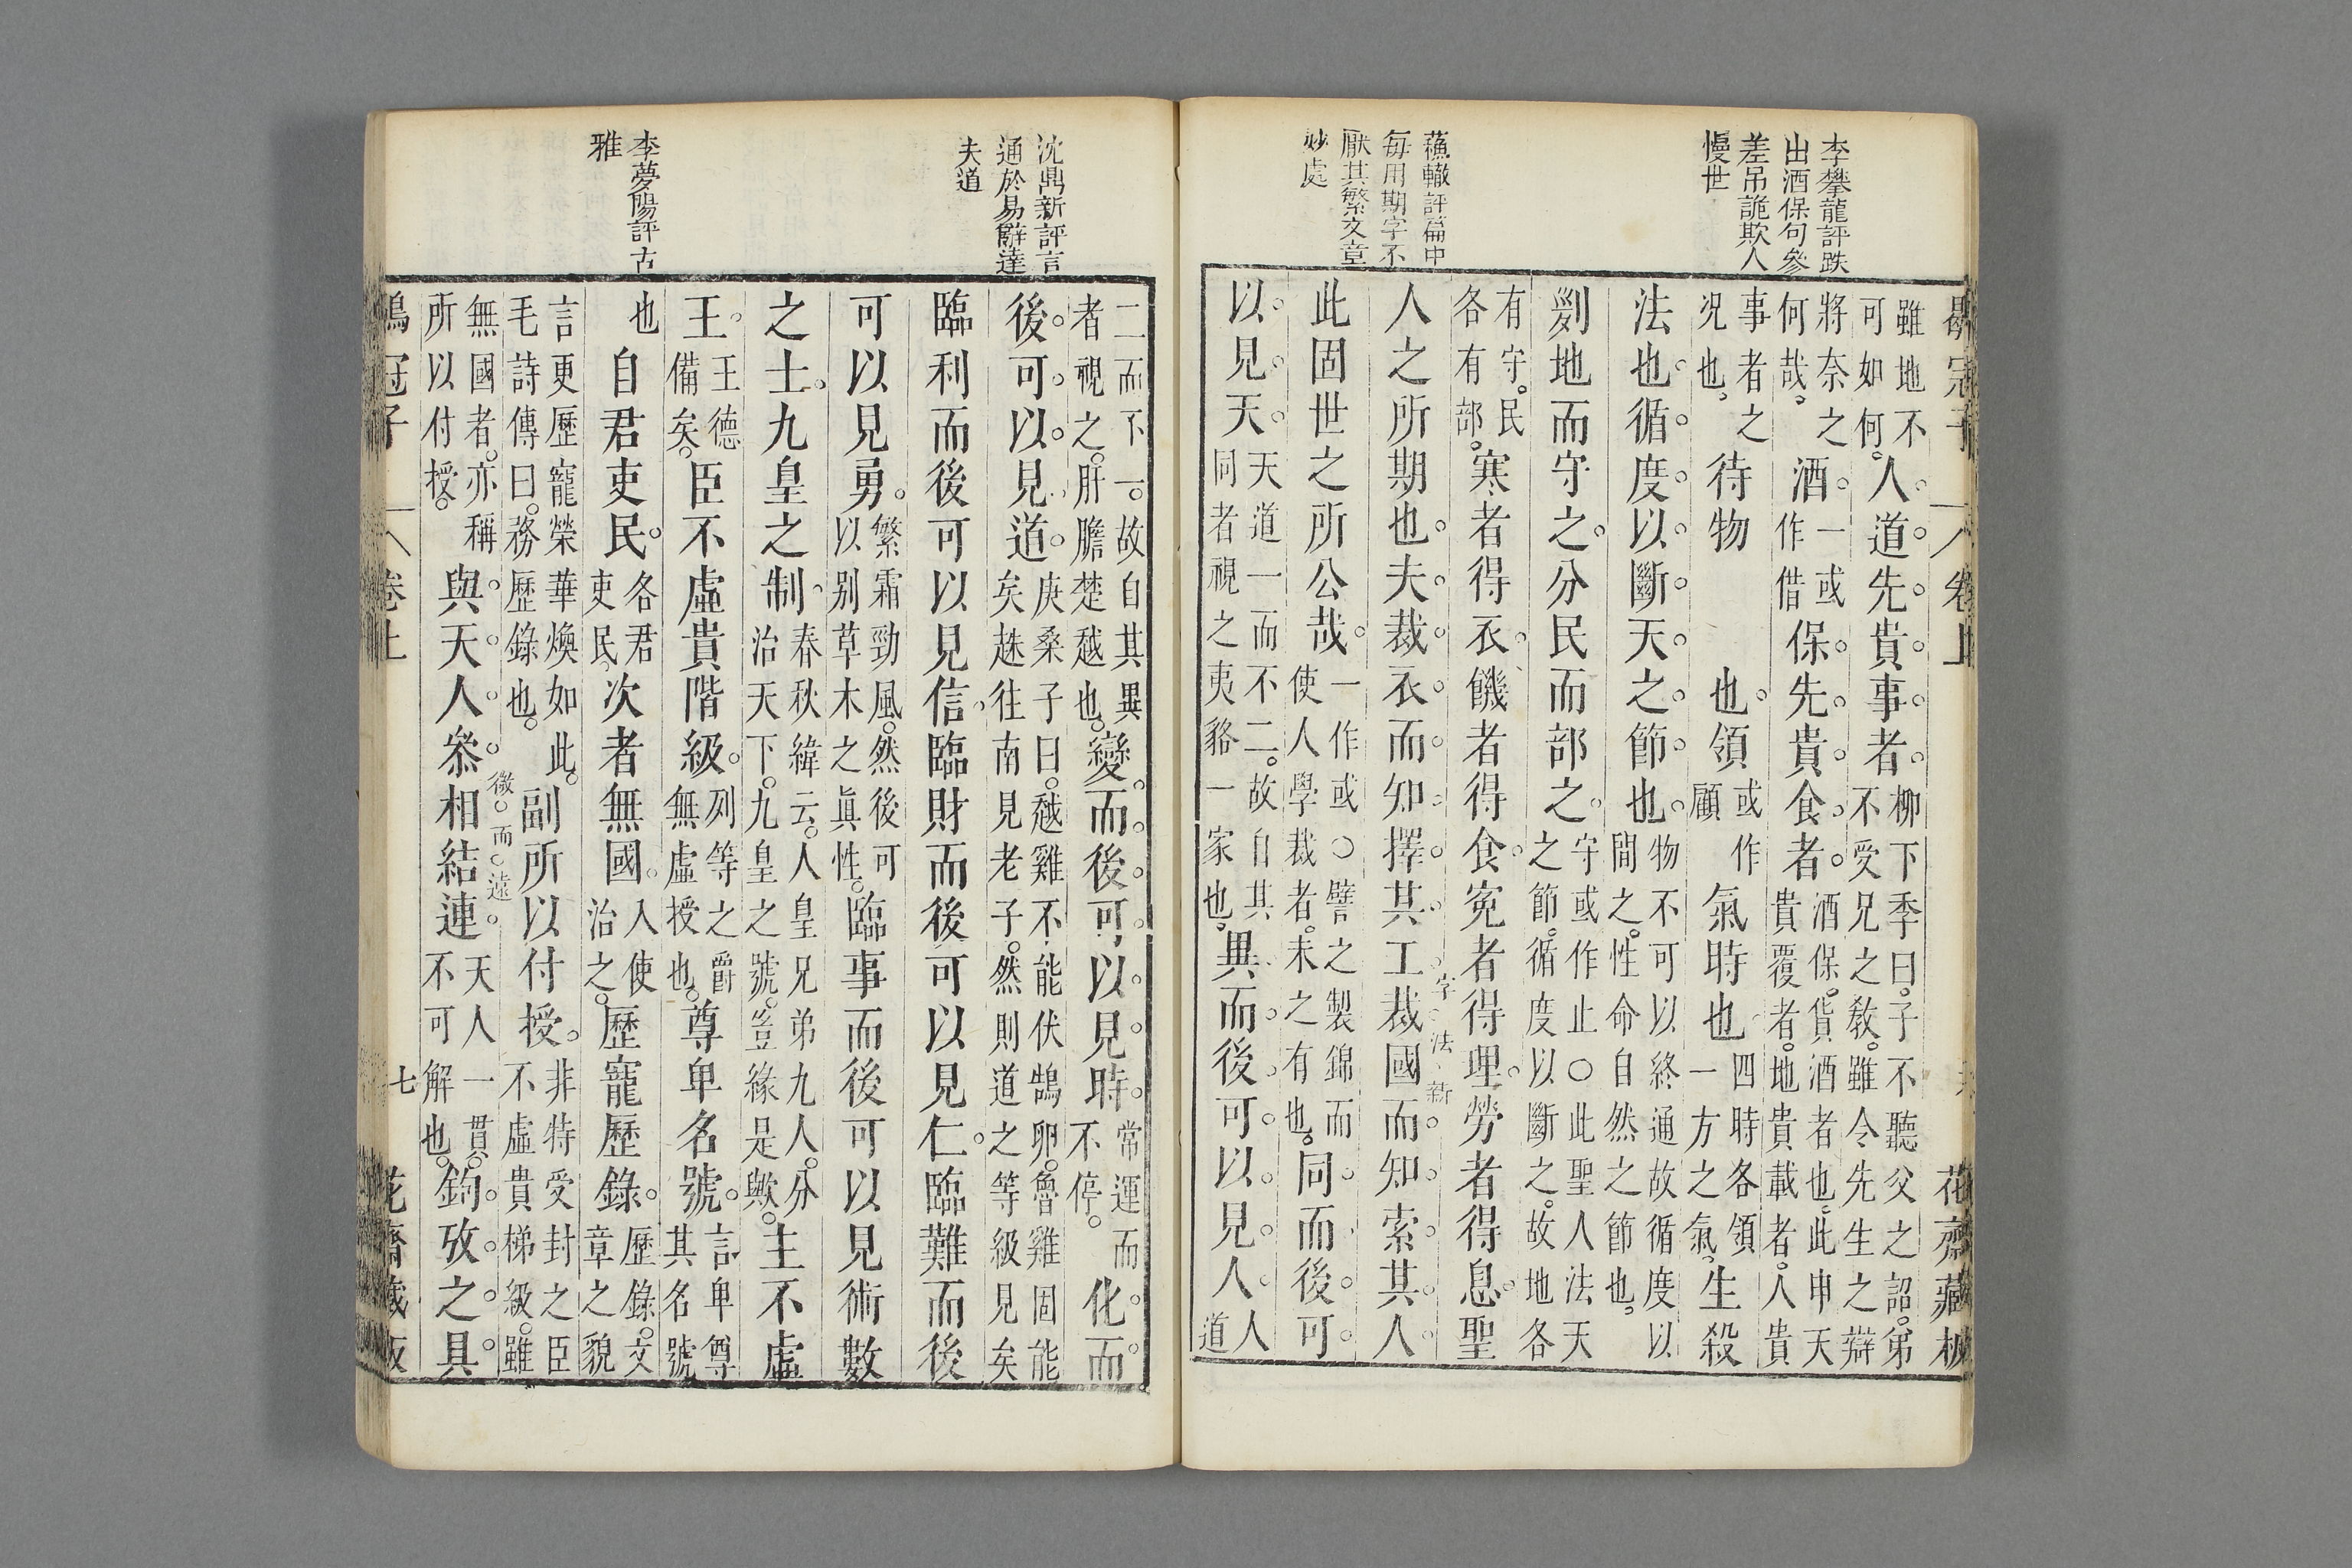 李攀龍評跌
出酒保句參
差吊詭欺人
慢世
蘓轍評篇中
每用期字不
厭其繁文章
妙處
冠子
卷上
花齋藏板
雖地不可如何。人道先貴事者。柳下季曰。子不聽父之詔。弟不受兄之敎。雖令先生之辯
將奈之何哉。酒一或作借保先貴食者。酒保。貨酒者也。此申天貴覆者。地貴載者。人貴
事者之況也。待物也。領或作顧氣時也。四時各領一方之氣。生殺
法也。循度以斷天之節也。物不可以終通故循度以間之。性命自然之節也。
剟地而守之。分民而部之。守或作止○此聖人法天之節。循度以斷之。故地各
有守。民各有部。寒者得衣。饑者得食。寃者得理。勞者得息。聖
人之所期也。夫裁衣而知擇其工。裁國而知索其人。
字法新
此固世之所公哉。一作或○譬之製錦而使人學裁者。未之有也。同而後可
以見天。天道一而不二。故自其同者視之夷貉一家也。異而後可以見人。人道
沈鼎新評言
通於易辭達
夫道
李夢陽評古
雅
二而不一。故自其異者視之。肝膽楚越也。變而後可以見時。常運而不停。化而
後可以見道。庚桑子曰。越雞不能伏鵠卵。魯雞固能矣趎往南見老子。然則道之等級見矣
臨利而後可以見信。臨財而後可以見仁。臨難而後
可以見勇。繁霜勁風。然後可以別草木之眞性。臨事而後可以見術數
之士。九皇之制。春秋緯云。人皇兄弟九人。分治天下。九皇之號。豈緣是歟。主不虛
王。王德備矣。臣不虛貴階級。列等之爵無虛授也。尊卑名號。言卑尊其名號
也自君吏民。各君吏民。次者無國。入使治之。歷寵歷錄。歷錄。文章之貌
言更歷寵榮華煥如此。毛詩傳曰。務歷錄也。副所以付授。非特受封之臣不虛貴梯級。雖
微而遠
無國者。亦稱所以付授。與天人叅相結連。天人一貫。不可解也。鉤攷之具。
冠子
卷上
七
花齋藏板